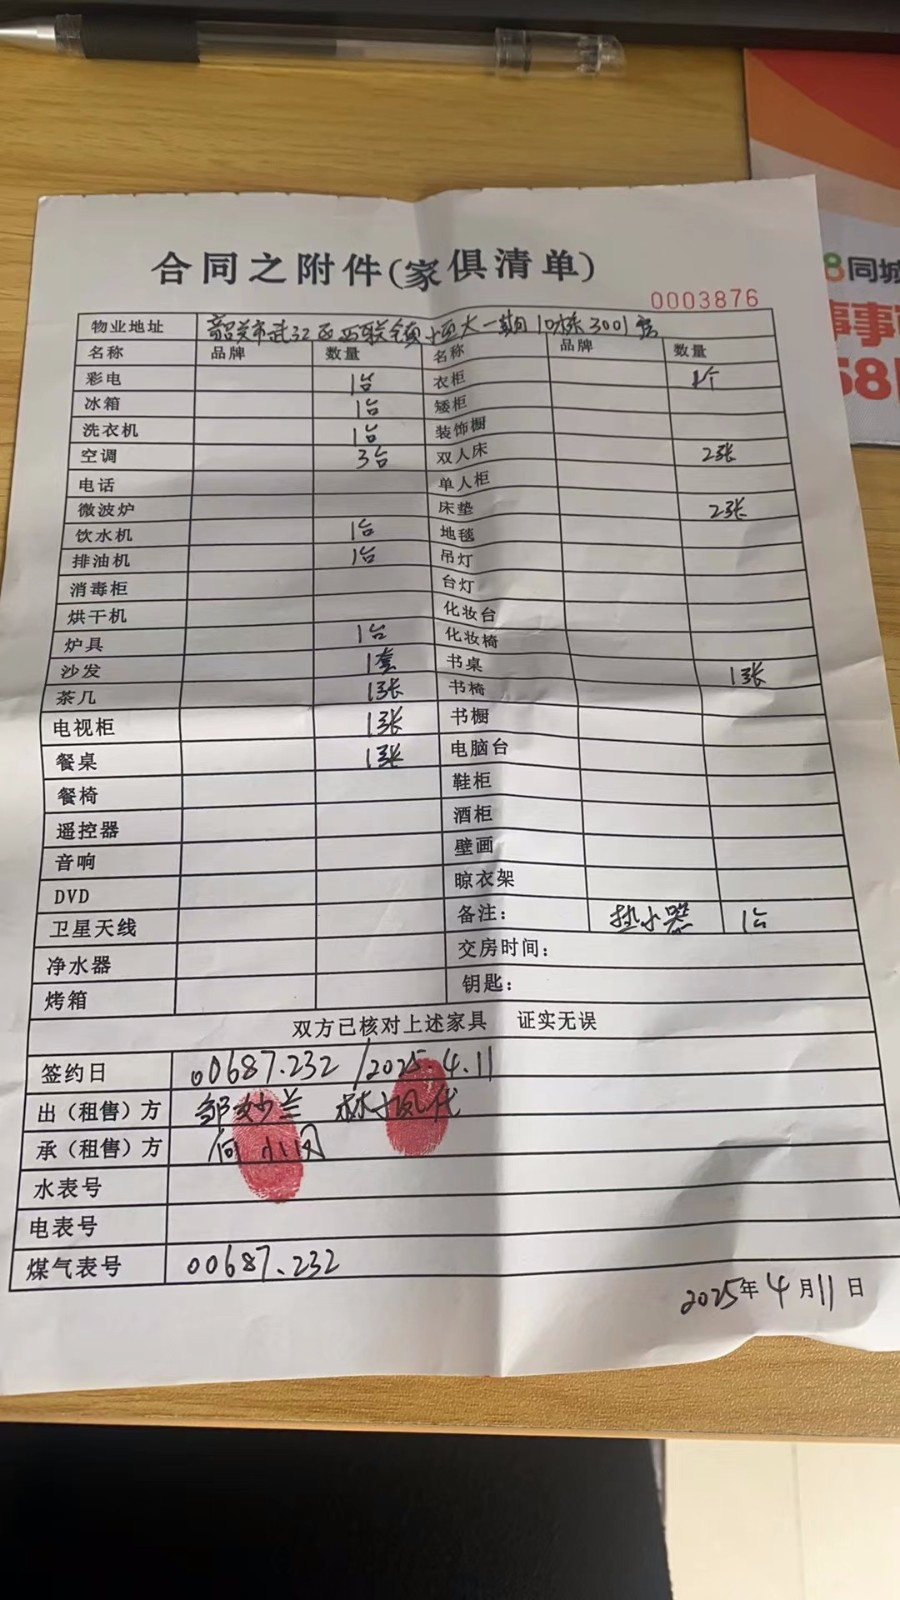 合同之附件(家俱清单)
0003876
物业地址 韶关市武江区西联镇恒大一期10栋3001房
名称 品牌 数量 名称 品牌 数量
彩电 1台 衣柜 1个
冰箱 1台 矮柜
洗衣机 1台 装饰橱
空调 3台 双人床 2张
电话 单人柜
微波炉 床垫 2张
饮水机 1台 地毯
排油机 1台 吊灯
消毒柜 台灯
烘干机 化妆台
炉具 1台 化妆椅
沙发 1套 书桌 1张
茶几 1张 书椅
电视柜 1张 书橱
餐桌 1张 电脑台
餐椅 鞋柜
遥控器 酒柜
音响 壁画
DVD 晾衣架
卫星天线 备注: 热水器 1台
净水器 交房时间:
烤箱 钥匙:
双方已核对上述家具 证实无误
签约日 00687.232 /2025.4.11
出（租售）方 邹妙兰 林凤代
承（租售）方 何小凤
水表号
电表号
煤气表号 00687.232
2025年4月11日
8同城
事事
58